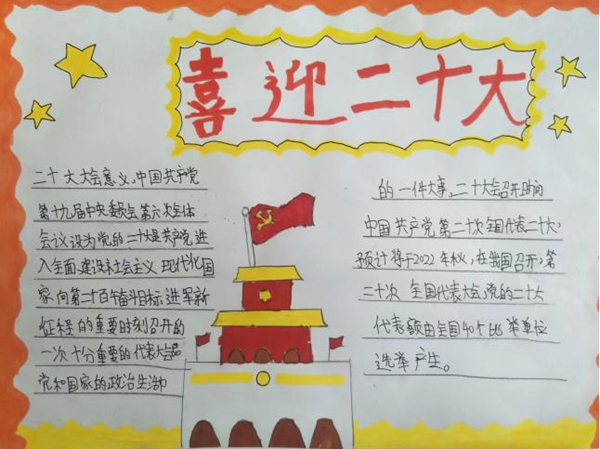 喜迎二十大
二十大大会意义，中国共产党
第十九届中央委员会第六次全体
会议设为党的二十大是共产党进
入全面建设社会主义现代化国
家向第二个百年奋斗目标进军新
征程的重要时刻召开的
一次十分重要的代表大会是
党和国家的政治生活中
的一件大事。二十大会召开时间
中国共产党第二十次全国代表二十大
预计将于2022年秋，在我国召开，第
二十次全国代表大会，党的二十大
代表额由全国40个选举单位
选举产生。